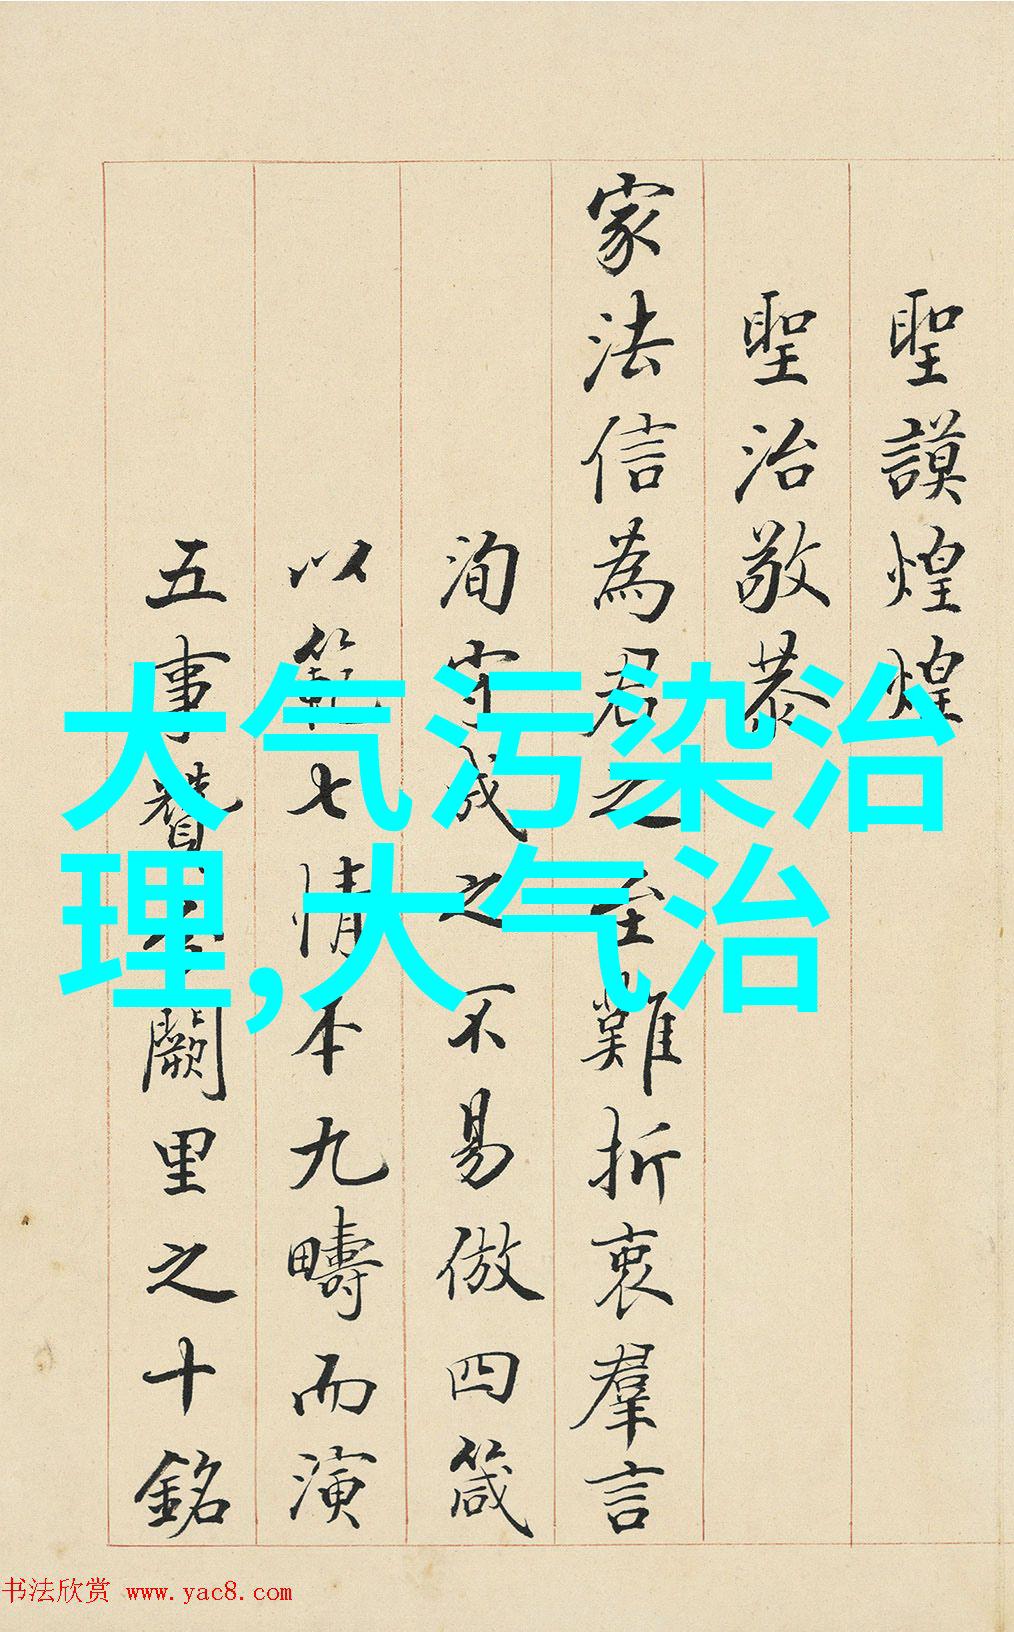 聖謨煌煌
聖治敬恭
家法信為君之至難折衷羣言
洵守成之不易倣四箴
以範七情本九疇而演
五事贊闕里之十銘
大气污染治
理,大气治
书法欣赏 www.yac8.com